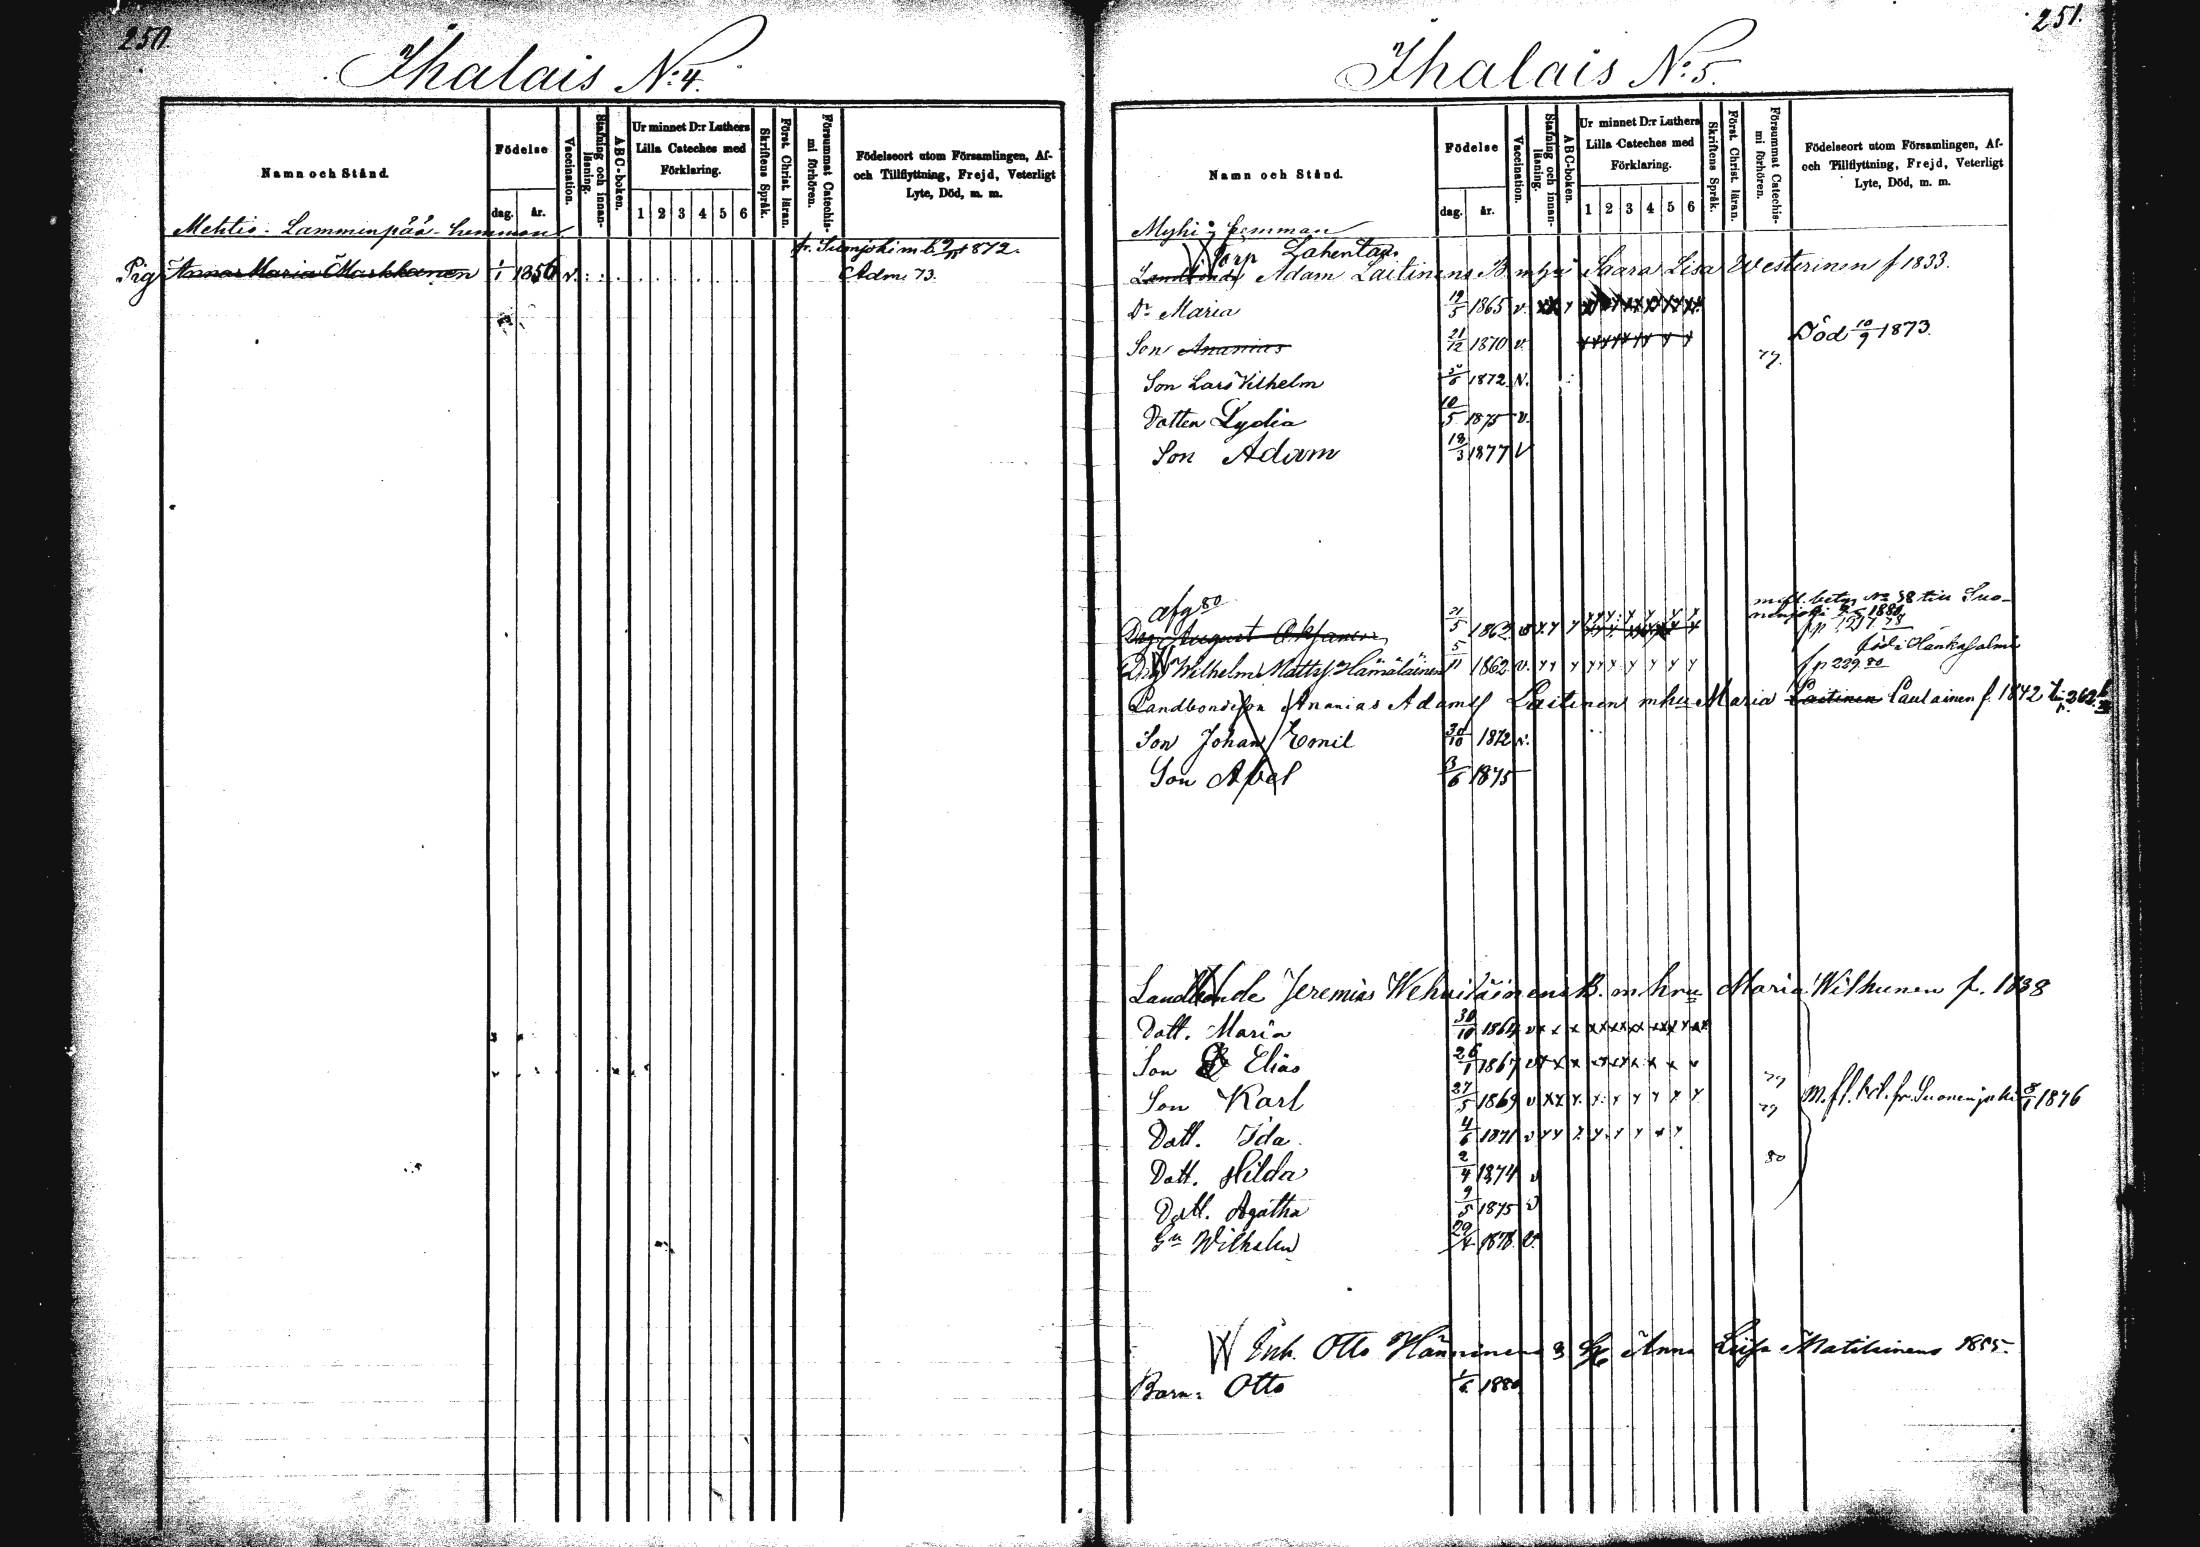 250.
Ihalais N:4.
Namn och Stånd.
Födelse
dag. år.
Vaccination.
Stafning och innan-läsning.
ABC-boken.
Ur minnet D:r Luthers
Lilla Cateches med
Förklaring.
1 2 3 4 5 6
Skriftens Språk.
Först. Christ. läran.
Försummat Catechis-mi förhören.
Födelseort utom Församlingen, Af-
och Tillflyttning, Frejd, Veterligt
Lyte, Död, m. m.
Mehtis- Lammenpää- hemman
1872.
Pig Anna Maria Markkanen 1/1 1856 v. Adm. 73.
251.
Ihalais N:5.
Namn och Stånd.
Födelse
dag. år.
Vaccination.
Stafning och innan-läsning.
ABC-boken.
Ur minnet D:r Luthers
Lilla Cateches med
Förklaring.
1 2 3 4 5 6
Skriftens Språk.
Först. Christ. läran.
Försummat Catechis-mi förhören.
Födelseort utom Församlingen, Af-
och Tillflyttning, Frejd, Veterligt
Lyte, Död, m. m.
Myhi: hemman
Torp Lahentaus
Landbonde Adam Laitinens B. m hu Saara Lisa Westerinen f 1833.
Dr Maria 19/5 1865 v.
Son Ananias 21/12 1870 v. Död 10/9 1873.
79.
Son Lars Vilhelm 1872 v.
Dotten Lydia 10/5 1875 v.
Son Adam 18/3 1877 v
afg 80
nenjoki 1880
Drg August Oksanen 21/5 1862
född i Hankasalmi
Drg Wilhelm Matts. Hämäläinen 5/11 1862 v. fp 229.80
Landbondeson Ananias Adamsf Laitinen m hu Maria Laitinen Paulainen f. 1842 362
Son Johan Emil 30/10 1872 v.
Son Abel 3/6 1875
Landbonde Jeremias Wehviläinens B. m hru Maria Wilhunen f. 1838
Dott. Maria 30/10 1864
Son Elias 26/1 1867
79
Son Karl 27/5 1869 v m. fl. bet. fr. Suonenjoki 8/1 1876
79
Dott. Ida 4/6 1871 v
80
Dott. Hilda 2/4 1874 v
Dott. Agatha 9/5 1875 v
Sn Wilhelm 29/4 1878 v.
Inh. Otto Hänninens Anna Lisa Matilainens 1855.
Barn: Otto 1/6 1880